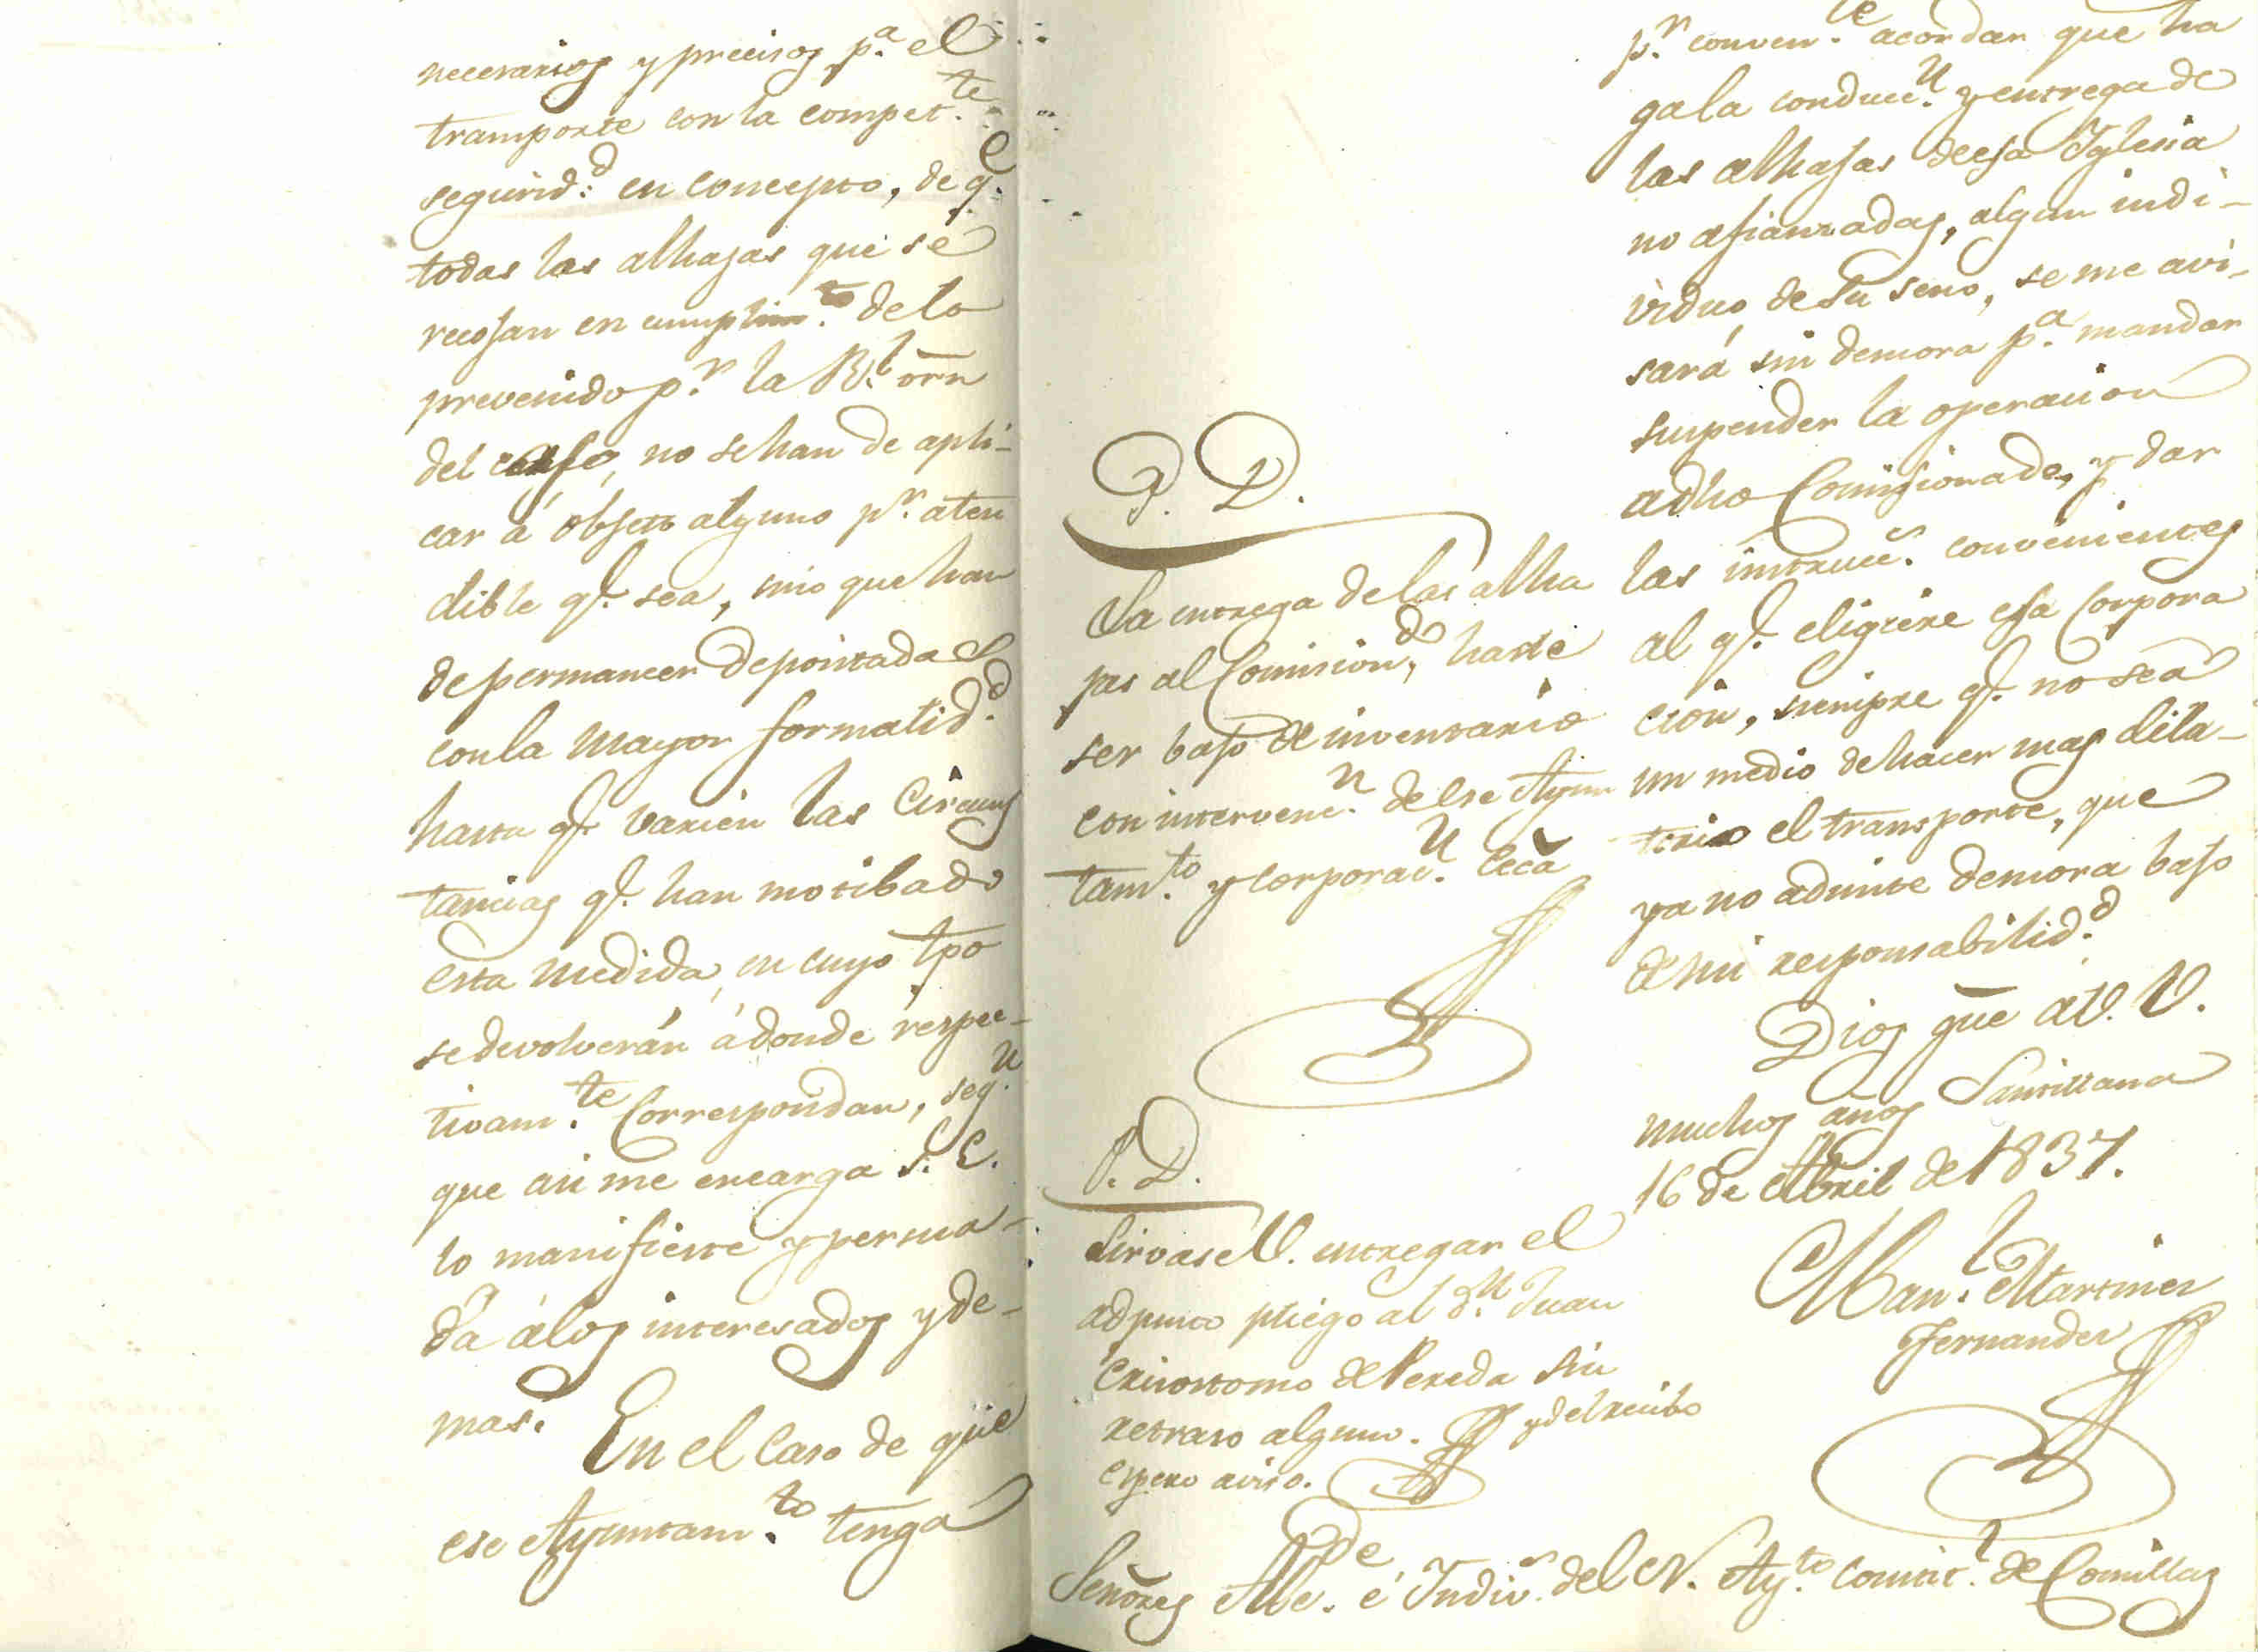 necesarios y precisos p.ª el
transporte con la compet.te
segurid.d en concepto, de q.e
todas las alhajas que se
recojan en cumplim.to de lo
prevenido p.r la R.l orn
del no se han de apli-
car á objeto alguno p.r aten
dible q.e sea, sino que han
de permanecer depositadas
con la mayor formalid.d
hasta q.e varien las circuns
tancias q.e han motibado
esta medida, en cuyo tpo
se devolverán á donde respec-
tivam.te correspondan, seg.n
que asi me encarga S. E.
lo manifieste y persua-
da á los interesados y de-
mas.
En el caso de que
ese Ayuntam.to tenga
p.r conven.te acordar que ha
ga la conducc.n y entrega de
las alhajas de esa Iglesia
no afianzadas, algun indi-
viduo de su seno, se me avi-
sará sin demora p.ª mandar
suspender la operacion
a dho Comisionado, y dar
las instrucc.s convenientes
al q.e eligiere esa Corpora
cion, siempre q.e no sea
un medio de hacer mas dila-
torio el transporte, que
ya no admite demora bajo
de mi responsabilid.d
Dios gue á V. V.
muchos años Santillana
16 de Abril de 1837.
Man.l Martinez
Fernandez
P. D.
La entrega de las alha
jas al Comision.do, ha de
ser bajo de inventario
con intervenc.n de ese Ayun
tam.to y corporac.n Ecca
P. D.
Sirvase V. entregar el
adjunto pliego al S.n Juan
Crisostomo de Pereda sin
retraso alguno. y del recibo
espero aviso.
Señores Alc.de é Indiv.s del N. Ay.to Constit.l de Comillas